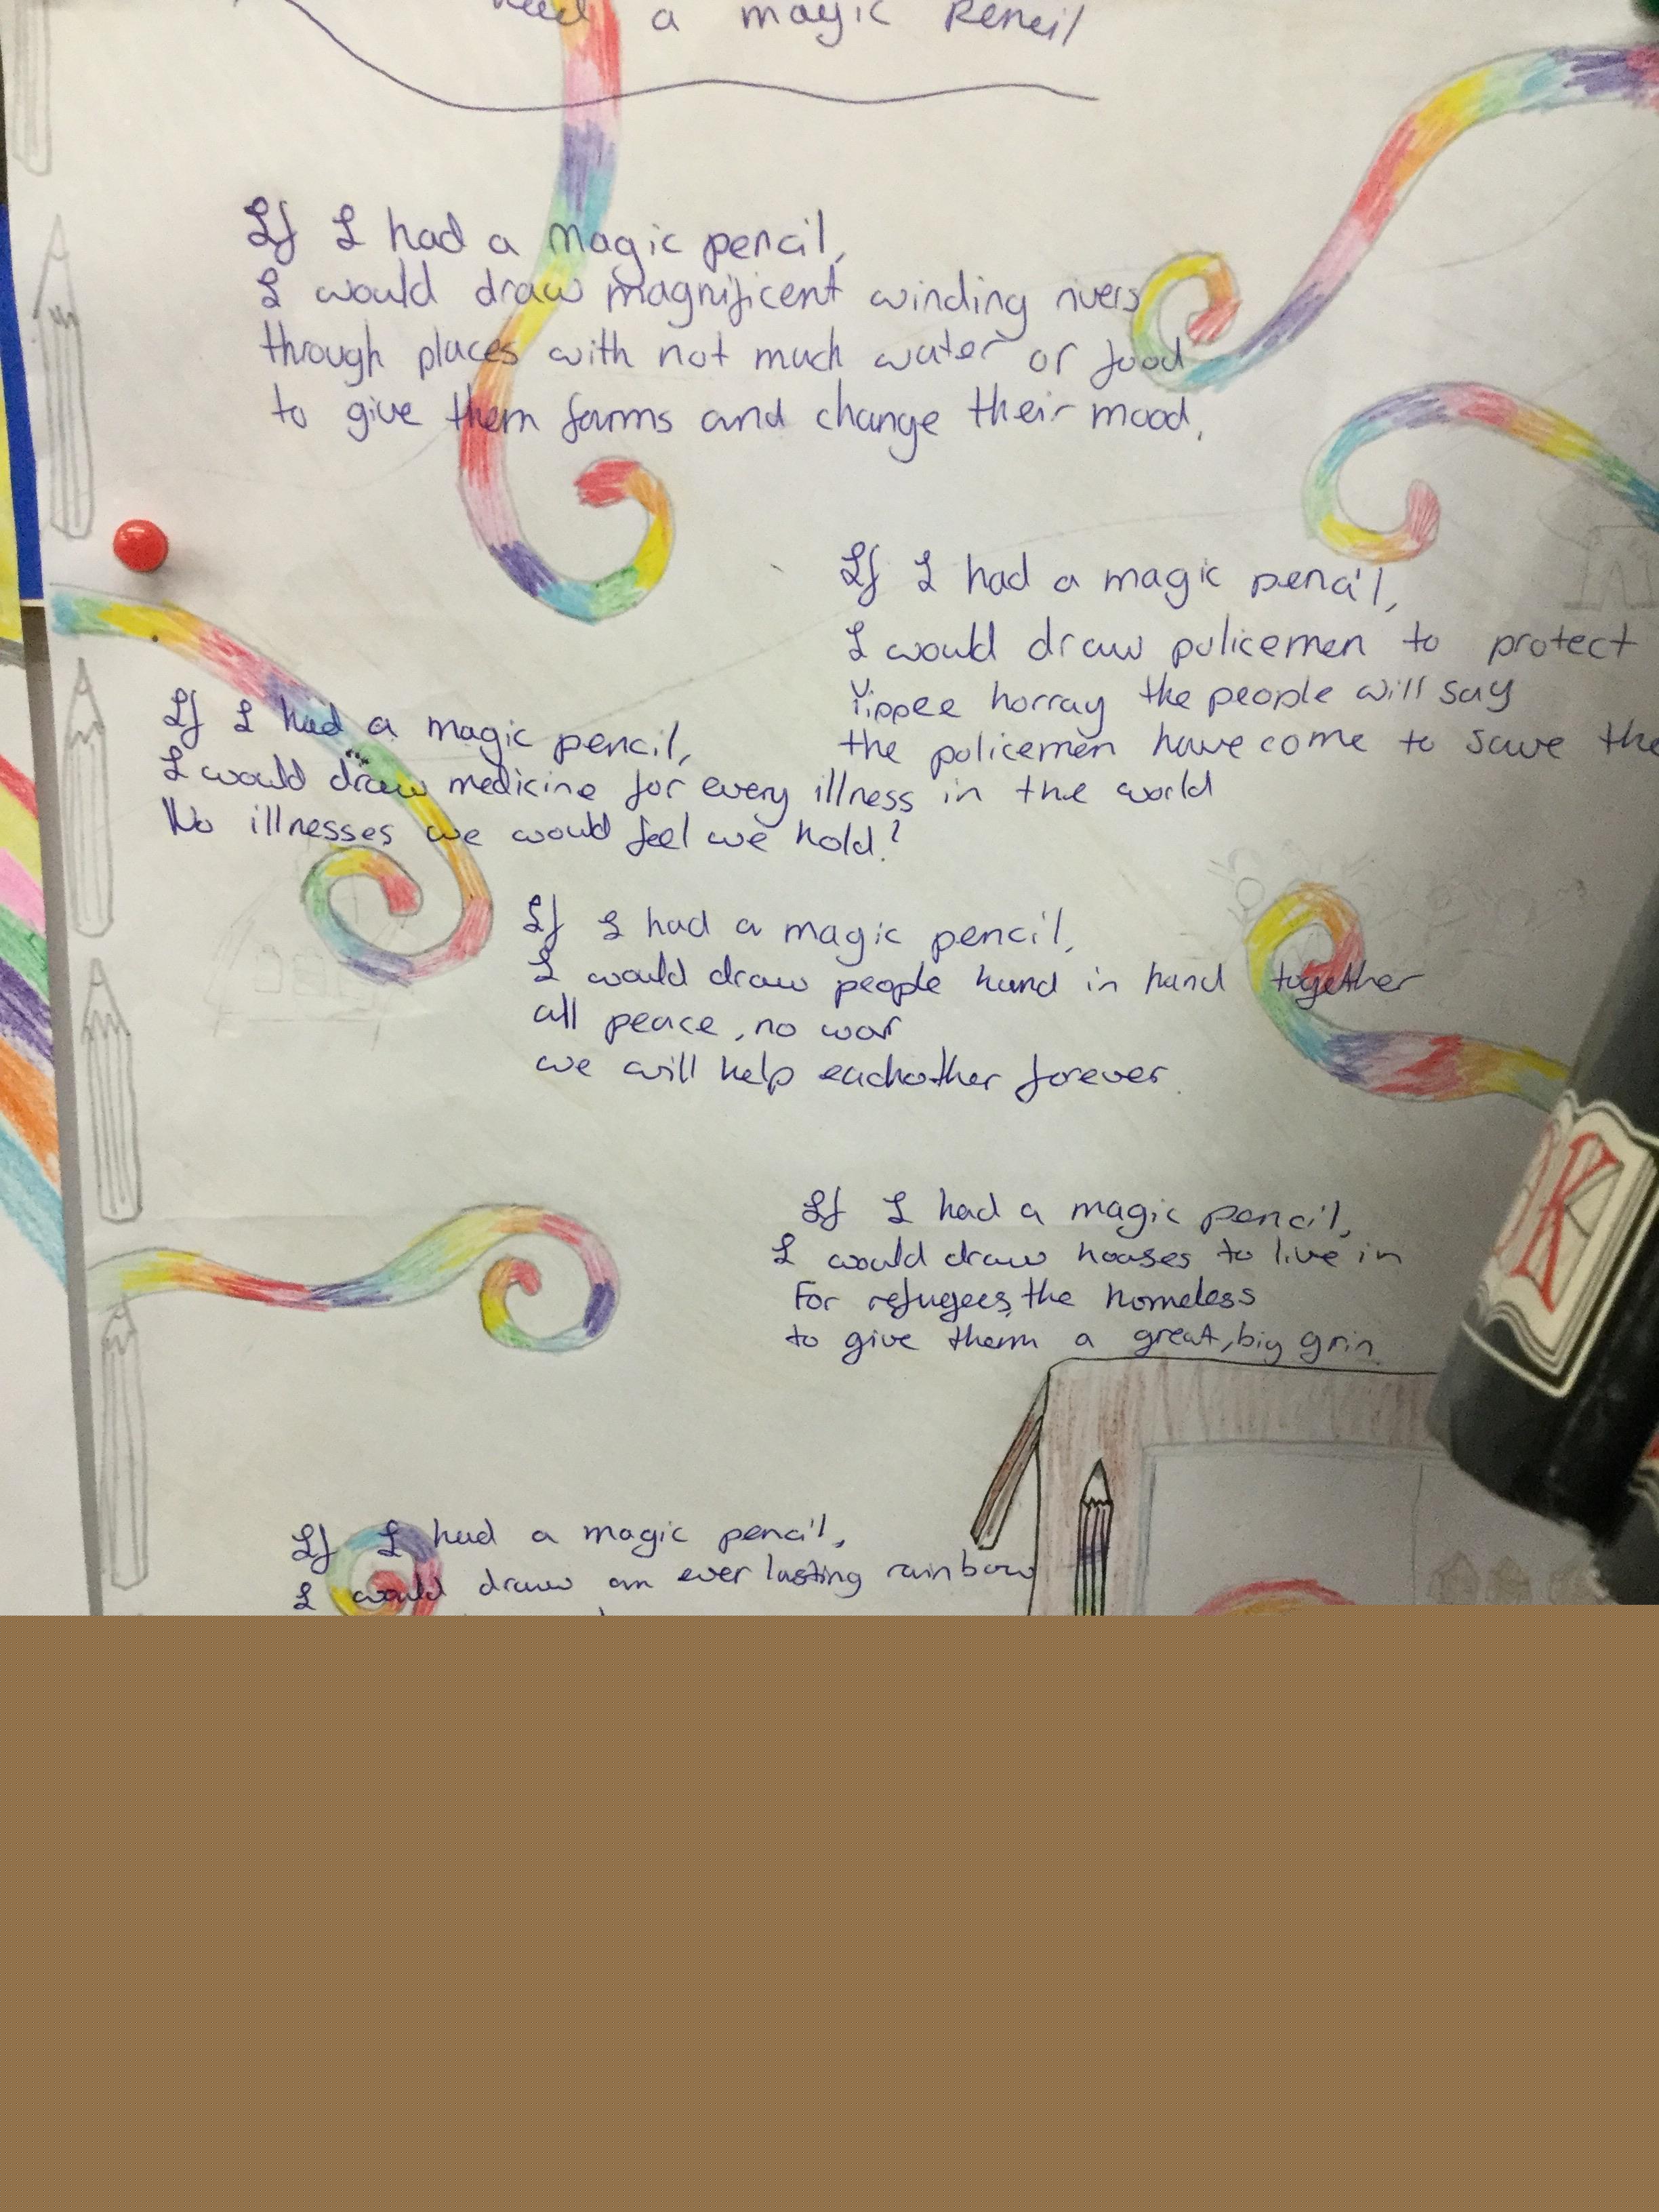 had a magic Pencil
If I had a magic pencil,
I would draw magnificent winding rivers
through places with not much water or food
to give them farms and change their mood.
If I had a magic pencil,
I would draw policemen to protect
Yippee horray the people will say
the policemen have come to save the
If I had a magic pencil,
I would draw medicine for every illness in the world
No illnesses we would feel we hold!
If I had a magic pencil,
I would draw people hand in hand together
all peace, no war
we will help eachother forever.
If I had a magic pencil,
I would draw houses to live in
For refugees, the homeless
to give them a great, big grin.
If I had a magic pencil,
I would draw an ever lasting rainbow
K